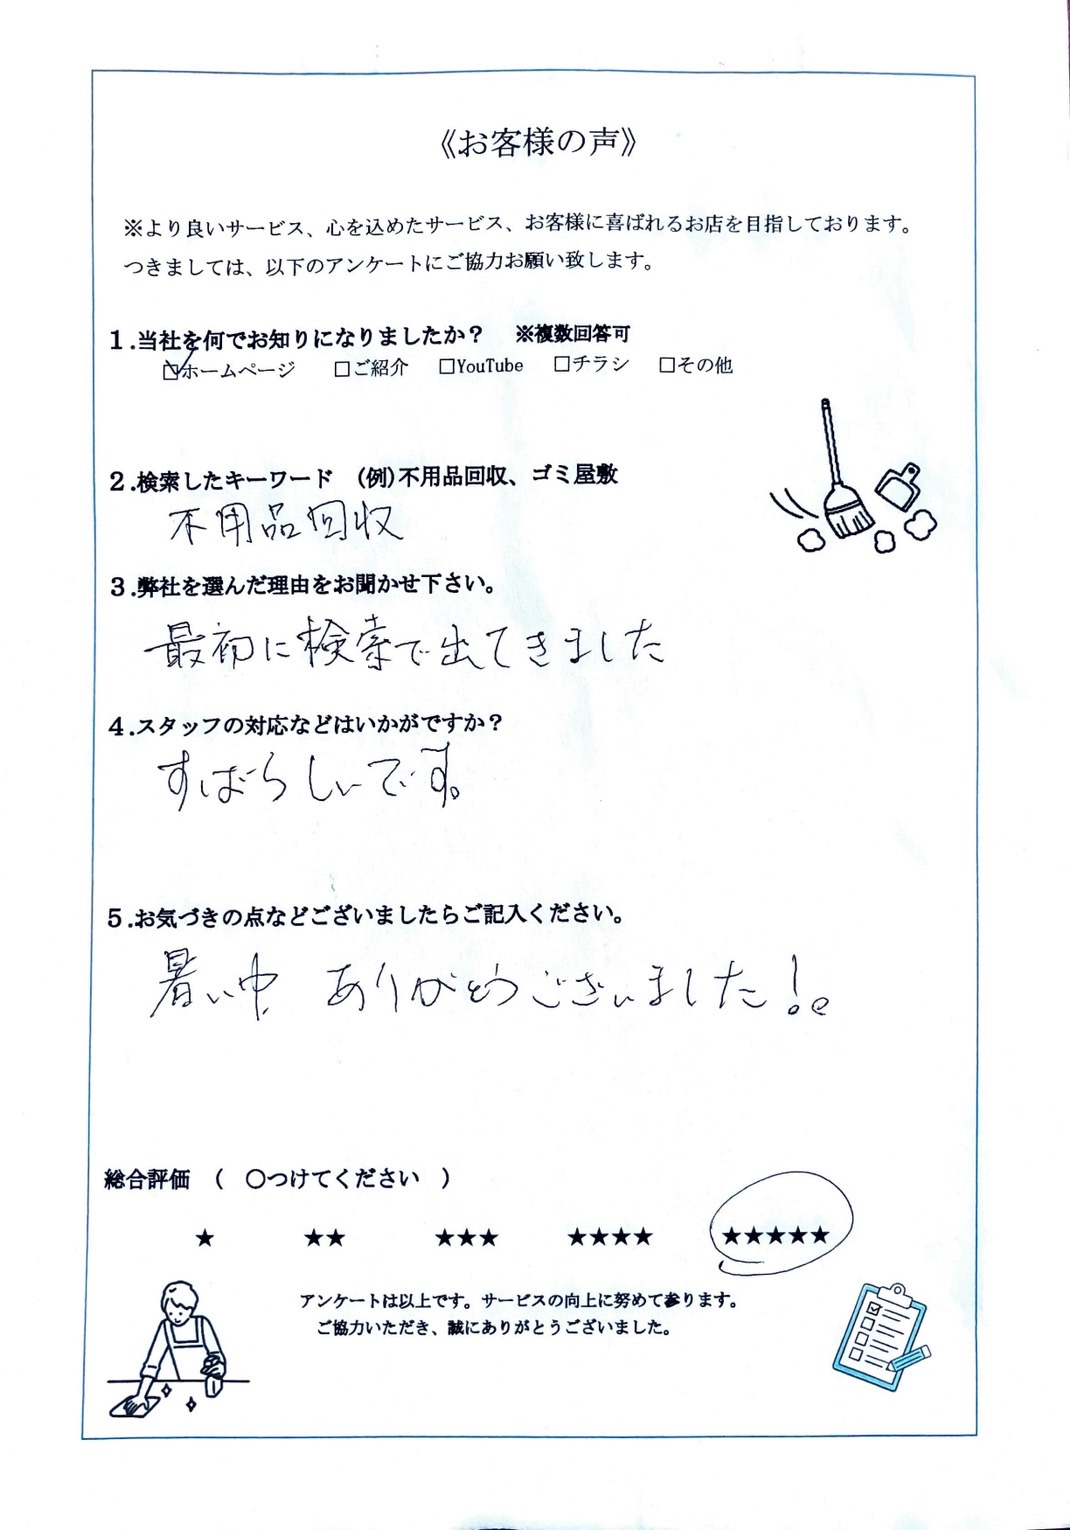 《お客様の声》
※より良いサービス、心を込めたサービス、お客様に喜ばれるお店を目指しております。
つきましては、以下のアンケートにご協力お願い致します。
１.当社を何でお知りになりましたか？　※複数回答可
☑ホームページ　□ご紹介　□YouTube　□チラシ　□その他
２.検索したキーワード　(例)不用品回収、ゴミ屋敷
不用品回収
３.弊社を選んだ理由をお聞かせ下さい。
最初に検索で出てきました
４.スタッフの対応などはいかがですか？
すばらしいです。
５.お気づきの点などございましたらご記入ください。
暑い中 ありがとうございました！。
総合評価　（　〇つけてください　）
★　★★　★★★　★★★★　★★★★★
アンケートは以上です。サービスの向上に努めて参ります。
ご協力いただき、誠にありがとうございました。